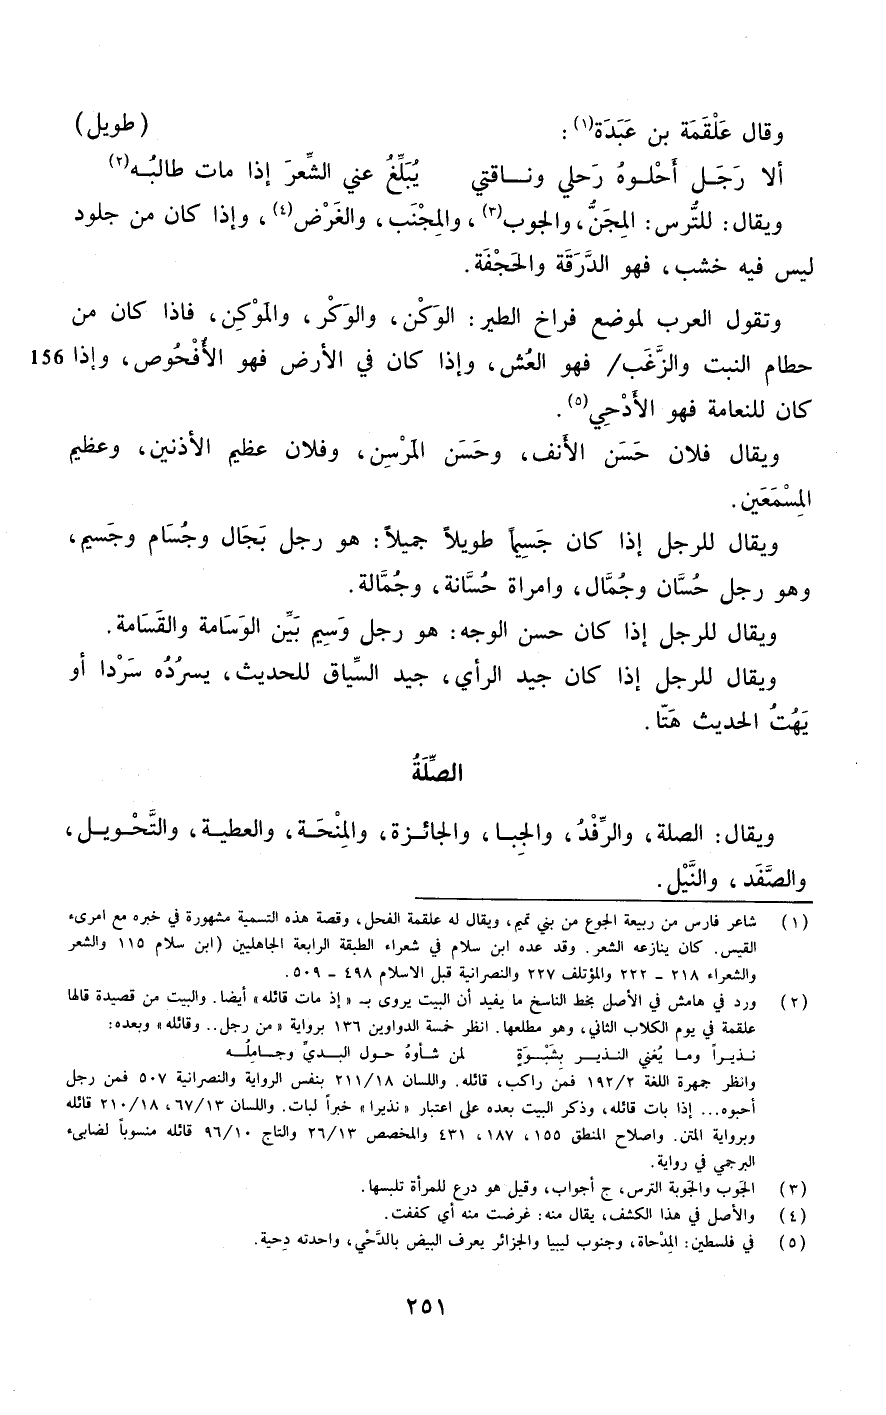 وقال عَلْقَمَة بن عَبَدَة(١) : (طويل)
ألا رَجَـل أَحْلـوهُ رَحلي ونـاقتي يُبَلِّغُ عني الشِّعرَ إذا مات طالبُـه(٢)
ويقال: للتُّرس: المِجَنُّ، والجوب(٣) ، والمِجْنَب، والغَرْض(٤) ، وإذا كان من جلود
ليس فيه خشب، فهو الدَّرَقَة والحَجَفَة.
وتقول العرب لموضع فراخ الطير: الوَكْن، والوَكْر، والمَوْكِن، فاذا كان من
حطام النبت والزَّغَب/ فهو العُش، وإذا كان في الأرض فهو الأُفْحُوص، وإذا 156
كان للنعامة فهو الأَدْحِي(٥) .
ويقال فلان حَسَن الأنف، وحَسَن المَرْسِن، وفلان عظيم الأذنين، وعظيم
المِسْمَعَين.
ويقال للرجل إذا كان جَسِيماً طويلاً جميلاً: هو رجل بَجَال وجُسَام وجَسيم،
وهو رجل حُسَّان وجُمَّال، وامراة حُسَّانة، وجُمَّالة.
ويقال للرجل إذا كان حسن الوجه: هو رجل وَسِيم بَيِّن الوَسَامة والقَسَامة.
ويقال للرجل إذا كان جيد الرأي، جيد السِّياق للحديث، يسرُدُه سَرْدا أو
يَهُتُ الحديث هَتّا.
الصِّلَةُ
ويقال: الصلة، والرِّفْدُ، والحِبـا، والجائـزة، والمِنْحَـة، والعطيـة، والتَّحْـويـل،
والصَّفَد، والنَّيْل.
(١) شاعر فارس من ربيعة الجوع من بني تميم، ويقال له علقمة الفحل، وقصة هذه التسمية مشهورة في خبره مع امرىء
القيس. كان ينازعه الشعر. وقد عده ابن سلام في شعراء الطبقة الرابعة الجاهليين (ابن سلام ١١٥ والشعر
والشعراء ٢١٨ - ٢٢٢ والمؤتلف ٢٢٧ والنصرانية قبل الاسلام ٤٩٨ - ٥٠٩.
(٢) ورد في هامش في الأصل بخط الناسخ ما يفيد أن البيت يروى بـ «إذ مات قائله» أيضا. والبيت من قصيدة قالها
علقمة في يوم الكلاب الثاني، وهو مطلعها. انظر خمسة الدواوين ١٣٦ برواية «من رجل.. وقائله» وبعده:
نـذيـراً ومـا يُغني النـذيـر بِشَبْـوَةٍ لمن شـأوهُ حـول البـديِّ وجـامِلُـه
وانظر جمهرة اللغة ١٩٢/٢ فمن راكب، قائله. واللسان ٢١١/١٨ بنفس الرواية والنصرانية ٥٠٧ فمن رجل
أحبوه... إذا بات قائله، وذكر البيت بعده على اعتبار «نذيرا» خبراً لبات. واللسان ٦٧/١٣، ٢١٠/١٨ قائله
وبرواية المتن. واصلاح المنطق ١٥٥، ١٨٧، ٤٣١ والمخصص ٢٦/١٣ والتاج ٩٦/١٠ قائله منسوباً لضابىء
البرجمي في رواية.
(٣) الجَوب والجَوبة الترس، ج أجواب، وقيل هو درع للمرأة تلبسها.
(٤) والأصل في هذا الكشف، يقال منه: غرضت منه أي كففت.
(٥) في فلسطين: المِدْحاة، وجنوب ليبيا والجزائر يعرف البيض بالدَّحْي، واحدته دِحية.
٢٥١